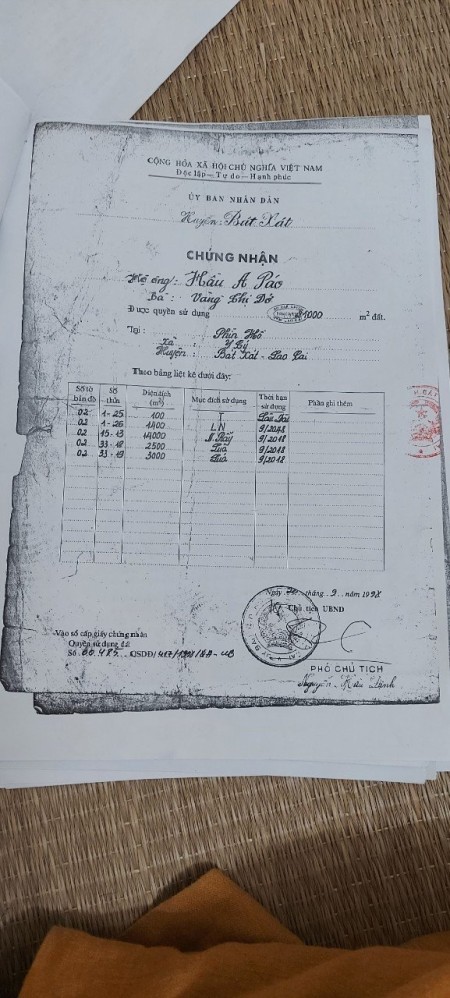 CỘNG HÒA XÃ HỘI CHỦ NGHĨA VIỆT NAM
Độc lập — Tự do — Hạnh phúc
ỦY BAN NHÂN DÂN
Huyện: Bát Xát
CHỨNG NHẬN
Hộ ông: Hầu A Páo
Bà: Vàng Thị Dở
Được quyền sử dụng 21000 m² đất.
Tại: Phìn Hồ
Xã: Y Tý
Huyện: Bát Xát - Lào Cai
Theo bảng liệt kê dưới đây:
Số tờ bản đồ Số thửa Diện tích (m²) Mục đích sử dụng Thời hạn sử dụng Phần ghi thêm
02 1-25 400 T Lâu dài
02 1-26 LN 9/2048
02 15-13 14000 N. Rẫy 9/2018
02 33-18 2500 Lúa 9/2018
02 33-19 3000 Lúa 9/2018
Ngày tháng 9 năm 1998
Chủ tịch UBND
Vào sổ cấp giấy chứng nhận
Quyền sử dụng đất
Số QSDĐ/
PHÓ CHỦ TỊCH
Nguyễn